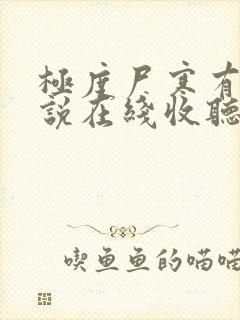 極度尸寒有
說在綫收聽
喫魚魚的喵喵